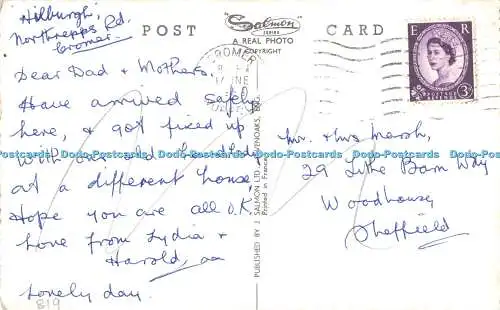 Hilburgh,
Northrepps Rd.
Cromer.
POST CARD
"Salmon"
SERIES
A REAL PHOTO
COPYRIGHT
CROMER
E R
3D
Dear Dad & Mothers.
Have arrived safely
here, & got fixed up
with one old
at a different house,
Hope you are all O.K.
Love from Lydia &
Harold, xx
Lonely day.
819
PUBLISHED BY J. SALMON LTD., SEVENOAKS, ENG.
Printed in
Mr. & Mrs Marsh,
29 Lithe Barn Way
Woodhouse,
Sheffield
Postcards Postcards Postcards Postcards Postcards Postcards Postcards Postcards